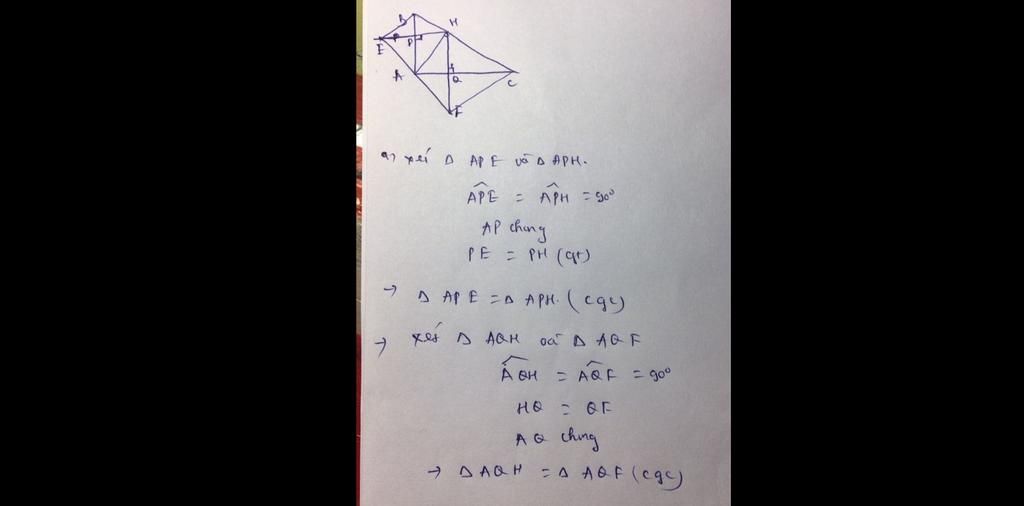 B
H
E
P
A
Q
C
F
a, xét Δ APE và Δ APH.
APE = APH = 90°
AP chung
PE = PH (gt)
→ Δ APE = Δ APH. (cgc)
→ xét Δ AQH và Δ AQF
AQH = AQF = 90°
HQ = QF
AQ chung
→ Δ AQH = Δ AQF (cgc)